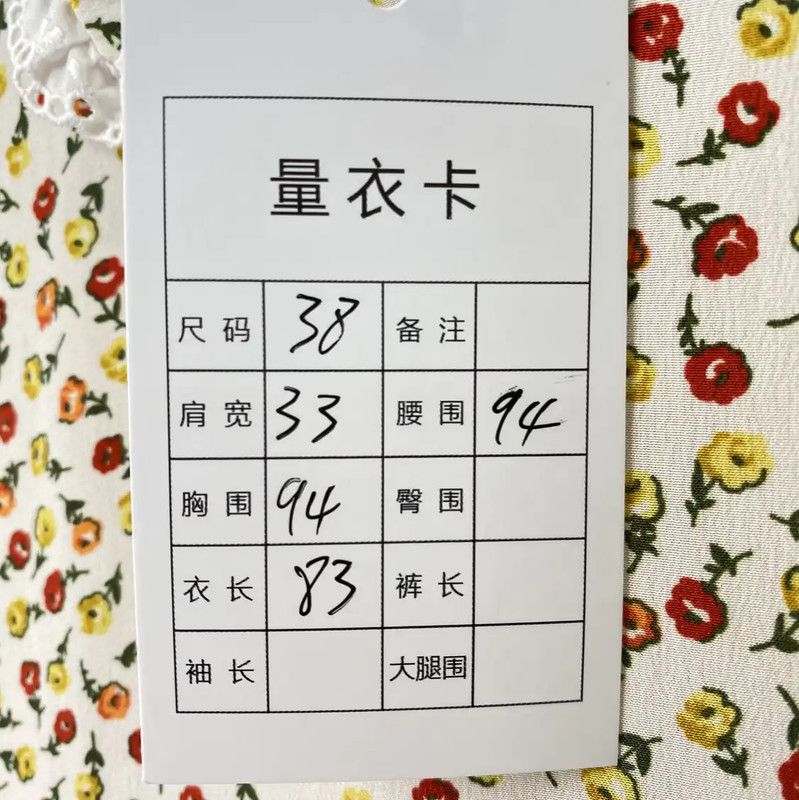 量衣卡
尺码 38 备注
肩宽 33 腰围 94
胸围 94 臀围
衣长 83 裤长
袖长 大腿围